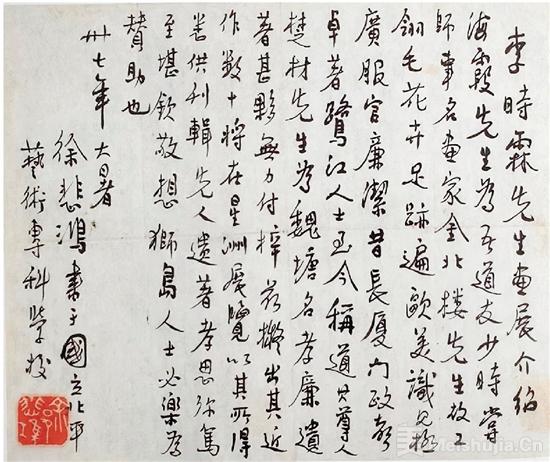 李時霖先生畫展介紹
海霞先生為吾道友少時嘗
師事名畫家金北樓先生故工
翎毛花卉足跡遍歐美識見極
廣服官廉潔昔長厦門政聲
卓著鷺江人士至今稱道其尊人
楚材先生為魏塘名孝廉遺
著甚夥無力付梓茲擬出其近
作数十將在星洲展覽以其所得
悉供刊輯先人遺著孝思弥篤
至堪欽敬想獅島人士必樂為
贊助也
卅七年大暑
徐悲鴻書于國立北平
藝術專科學校
Meishujia.Cn